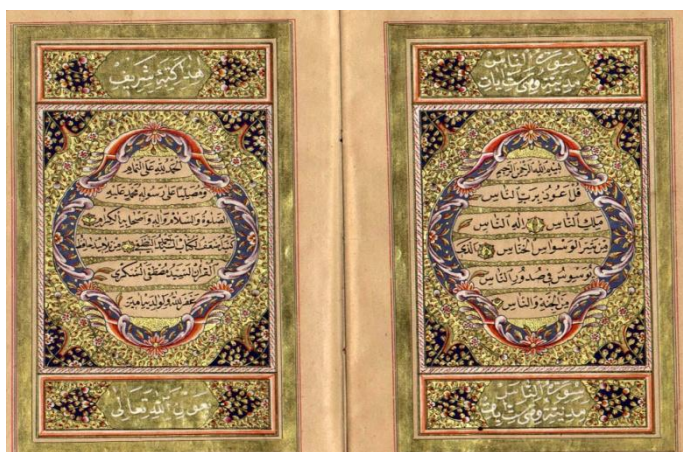 سورة الناس
مدنية وهي ست آيات
بسم الله الرحمن الرحيم
قل أعوذ برب الناس
ملك الناس إله الناس
من شر الوسواس الخناس الذي
يوسوس في صدور الناس
من الجنة والناس
سورة الناس
مدنية وهي ست آيات
شريف
الحمد لله على
ومصليا على رسوله محمد عليه
الصلوة والسلام وآله وأصحابه الكرام
القرآن السيد مصطفى
غفر الله له ولوالديه
بعون الله تعالى